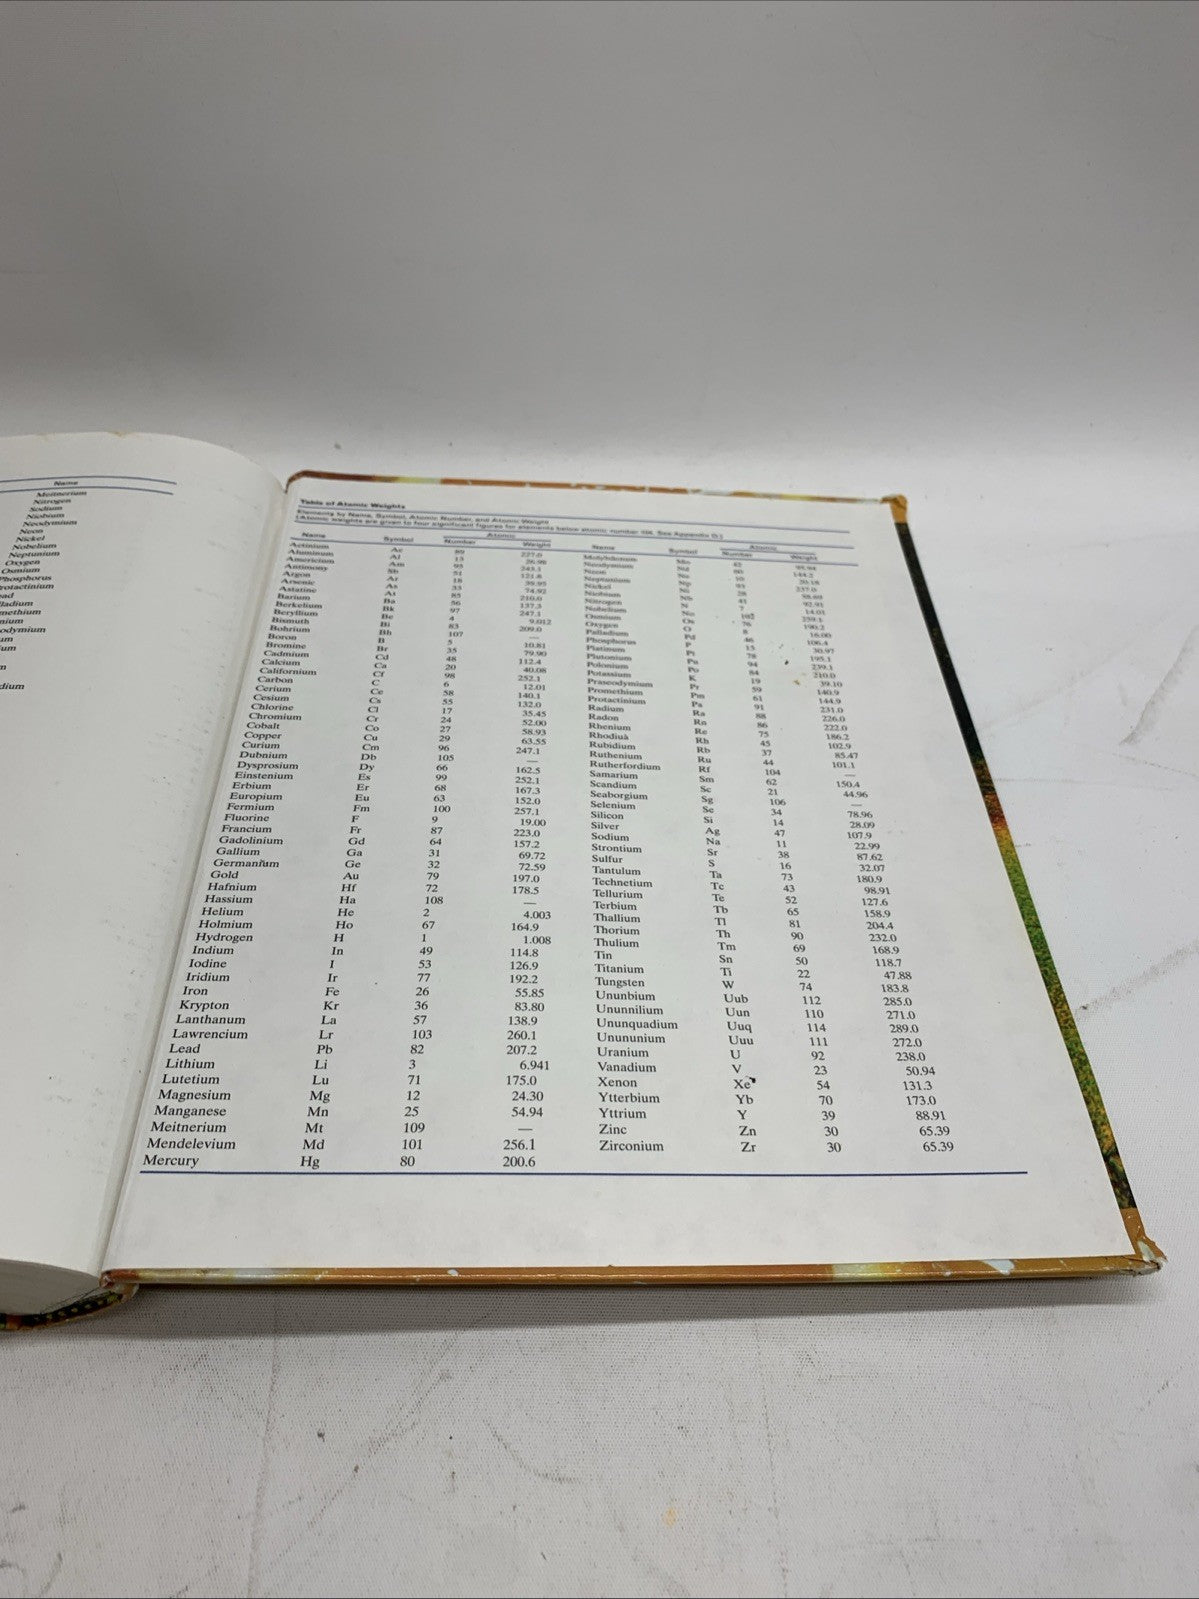 Name
Meitnerium
Nitrogen
Sodium
Niobium
Neodymium
Neon
Nickel
Nobelium
Neptunium
Oxygen
Osmium
Phosphorus
rotactinium
ead
lladium
methium
nium
odymium
um
ium
n
dium
Table of Atomic Weights
Elements by Name, Symbol, Atomic Number, and Atomic Weight
(Atomic weights are given to four significant figures for elements below atomic number 104. See Appendix D.)
Name Symbol Atomic Number Weight
Actinium Ac 89 227.0
Aluminum Al 13 26.98
Americium Am 95 243.1
Antimony Sb 51 121.8
Argon Ar 18 39.95
Arsenic As 33 74.92
Astatine At 85 210.0
Barium Ba 56 137.3
Berkelium Bk 97 247.1
Beryllium Be 4 9.012
Bismuth Bi 83 209.0
Bohrium Bh 107 —
Boron B 5 10.81
Bromine Br 35 79.90
Cadmium Cd 48 112.4
Calcium Ca 20 40.08
Californium Cf 98 252.1
Carbon C 6 12.01
Cerium Ce 58 140.1
Cesium Cs 55 132.0
Chlorine Cl 17 35.45
Chromium Cr 24 52.00
Cobalt Co 27 58.93
Copper Cu 29 63.55
Curium Cm 96 247.1
Dubnium Db 105 —
Dysprosium Dy 66 162.5
Einstenium Es 99 252.1
Erbium Er 68 167.3
Europium Eu 63 152.0
Fermium Fm 100 257.1
Fluorine F 9 19.00
Francium Fr 87 223.0
Gadolinium Gd 64 157.2
Gallium Ga 31 69.72
Germanium Ge 32 72.59
Gold Au 79 197.0
Hafnium Hf 72 178.5
Hassium Ha 108 —
Helium He 2 4.003
Holmium Ho 67 164.9
Hydrogen H 1 1.008
Indium In 49 114.8
Iodine I 53 126.9
Iridium Ir 77 192.2
Iron Fe 26 55.85
Krypton Kr 36 83.80
Lanthanum La 57 138.9
Lawrencium Lr 103 260.1
Lead Pb 82 207.2
Lithium Li 3 6.941
Lutetium Lu 71 175.0
Magnesium Mg 12 24.30
Manganese Mn 25 54.94
Meitnerium Mt 109 —
Mendelevium Md 101 256.1
Mercury Hg 80 200.6
Name Symbol Atomic Number Weight
Molybdenum Mo 42 95.94
Neodymium Nd 60 144.2
Neon Ne 10 20.18
Neptunium Np 93 237.0
Nickel Ni 28 58.69
Niobium Nb 41 92.91
Nitrogen N 7 14.01
Nobelium No 102 259.1
Osmium Os 76 190.2
Oxygen O 8 16.00
Palladium Pd 46 106.4
Phosphorus P 15 30.97
Platinum Pt 78 195.1
Plutonium Pu 94 239.1
Polonium Po 84 210.0
Potassium K 19 39.10
Praseodymium Pr 59 140.9
Promethium Pm 61 144.9
Protactinium Pa 91 231.0
Radium Ra 88 226.0
Radon Rn 86 222.0
Rhenium Re 75 186.2
Rhodiuà Rh 45 102.9
Rubidium Rb 37 85.47
Ruthenium Ru 44 101.1
Rutherfordium Rf 104 —
Samarium Sm 62 150.4
Scandium Sc 21 44.96
Seaborgium Sg 106 —
Selenium Se 34 78.96
Silicon Si 14 28.09
Silver Ag 47 107.9
Sodium Na 11 22.99
Strontium Sr 38 87.62
Sulfur S 16 32.07
Tantulum Ta 73 180.9
Technetium Tc 43 98.91
Tellurium Te 52 127.6
Terbium Tb 65 158.9
Thallium Tl 81 204.4
Thorium Th 90 232.0
Thulium Tm 69 168.9
Tin Sn 50 118.7
Titanium Ti 22 47.88
Tungsten W 74 183.8
Ununbium Uub 112 285.0
Ununnilium Uun 110 271.0
Ununquadium Uuq 114 289.0
Unununium Uuu 111 272.0
Uranium U 92 238.0
Vanadium V 23 50.94
Xenon Xe 54 131.3
Ytterbium Yb 70 173.0
Yttrium Y 39 88.91
Zinc Zn 30 65.39
Zirconium Zr 30 65.39